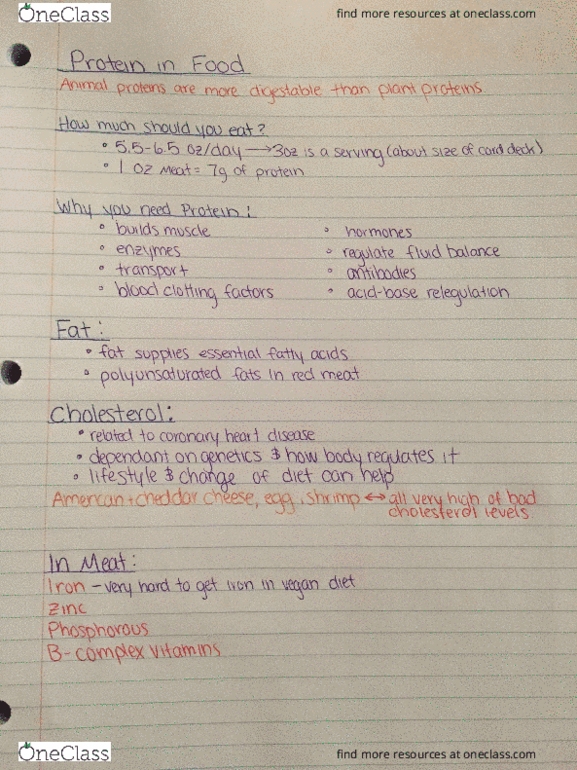 OneClass
find more resources at oneclass.com
Protein in Food
Animal proteins are more digestable than plant proteins
How much should you eat?
• 5.5-6.5 oz/day → 3oz is a serving (about size of card deck)
• 1 oz meat = 7g of protein
Why you need Protein:
• builds muscle
• enzymes
• transport
• blood clotting factors
• hormones
• regulate fluid balance
• antibodies
• acid-base relegulation
Fat:
• fat supplies essential fatty acids
• polyunsaturated fats in red meat
Cholesterol:
• related to coronary heart disease
• dependant on genetics & how body regulates it
• lifestyle & change of diet can help
American + cheddar cheese, egg, shrimp ↔ all very high of bad
cholesterol levels
In Meat:
Iron - very hard to get iron in vegan diet
Zinc
Phosphorous
B-complex vitamins
OneClass
find more resources at oneclass.com